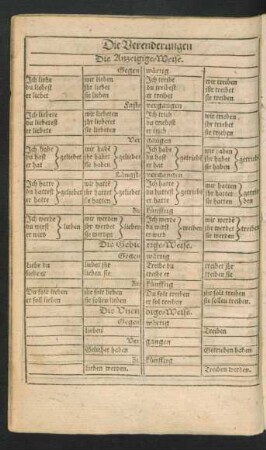 Die Verenderungen
Die Anzeigige-Weise.
Gegen wärtig
Ich liebe wir lieben Ich treibe wir treiben
du liebest ihr liebet du treibest ihr treibet
er liebet sie lieben er treibet sie treiben
vergangen
Ich liebte wir liebeten Ich trieb wir trieben
du liebetest ihr liebetet du triebest ihr triebet
er liebete sie liebeten er trieb sie trieben
Ver gangen
Ich habe wir haben Ich habe wir haben
du hast geliebet ihr habet geliebet du hast getrieben ihr habet getrieben
er hat sie haben er hat sie haben
Längst vergangen
Ich hatte wir hatten Ich hatte wir hatten
du hattest geliebet ihr hattet geliebet du hattest getrieben ihr hattet getrieben
er hatte sie hatten er hatte sie hatten
Zu künfftig
Ich werde wir werden Ich werde wir werden
du wirst lieben ihr werdet lieben du wirst treiben ihr werdet treiben
er wird sie werden er wird sie werden
Die Gebie tige-Weise.
Gegen wärtig
Liebe du liebet ihr Treibe du treibet ihr
liebe er lieben sie treibe er treiben sie
Zu künfftig
Du solt lieben ihr solt lieben Du solt treiben ihr solt treiben
er sol lieben sie sollen lieben er sol treiben sie sollen treiben
Die Unen dige-Weise.
Gegen wärtig
lieben Treiben
Ver gangen
Geliebet haben Getrieben haben
Zu künfftig
lieben werden. Treiben werden.